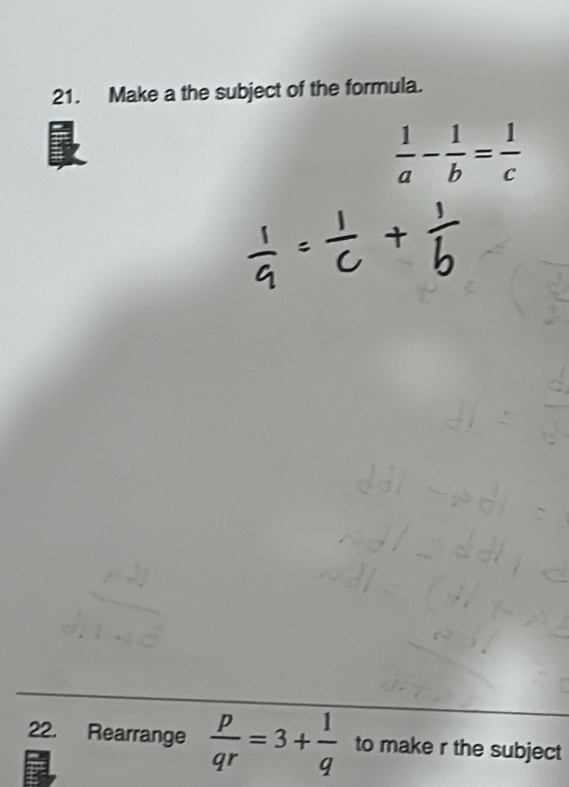 21. Make a the subject of the formula.
1/a - 1/b = 1/c
1/a = 1/c + 1/b
22. Rearrange p/qr = 3 + 1/q to make r the subject